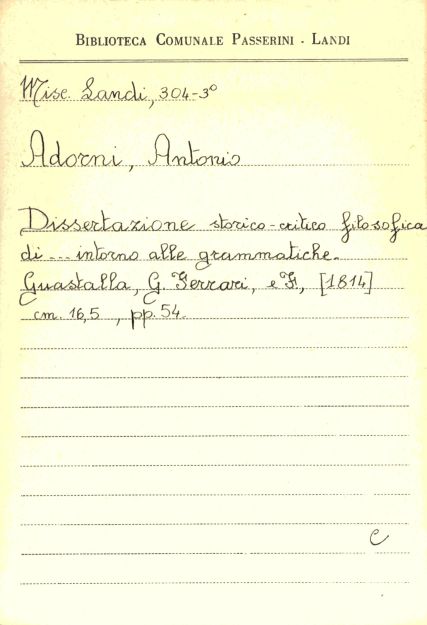 BIBLIOTECA COMUNALE PASSERINI - LANDI
Misc. Landi, 304-3º
Adorni, Antonio
Dissertazione storico-critico filosofica
di ... intorno alle grammatiche.
Guastalla, G. Ferrari, e F., [1814]
cm. 16,5 , pp. 54.
C